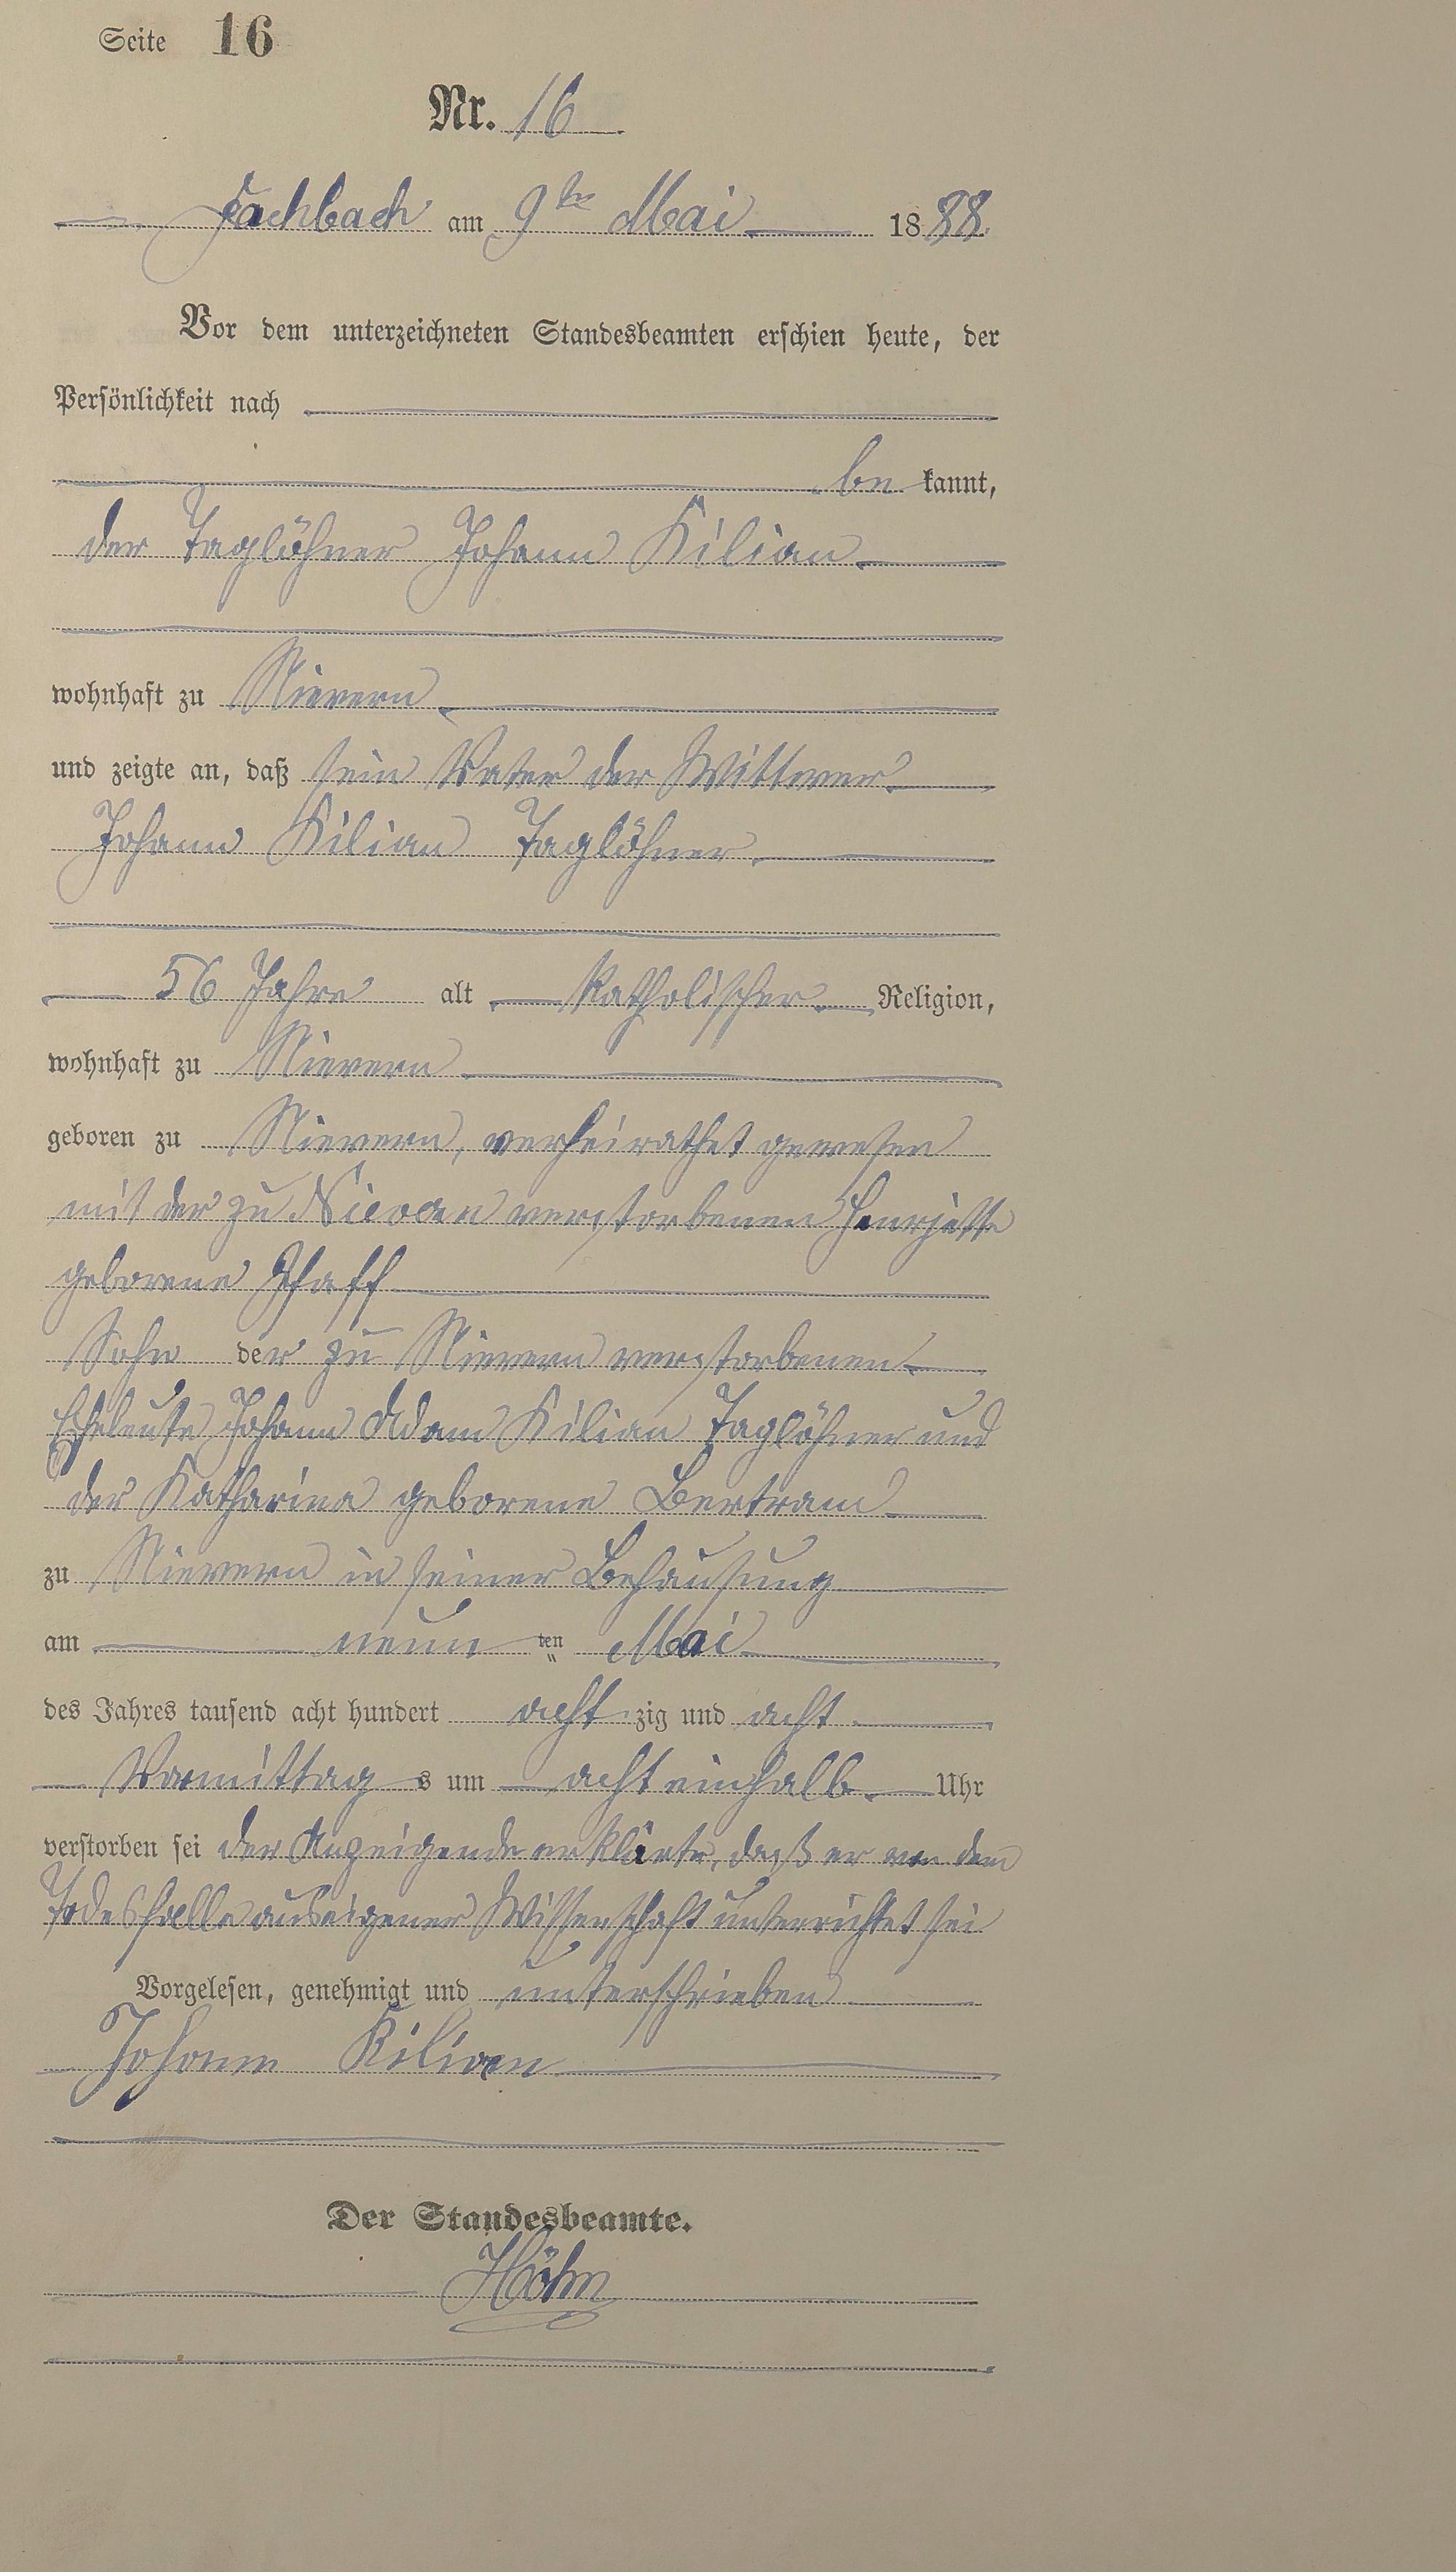 Seite 16
Nr. 16
Fachbach am 9ten Mai 1888.
Vor dem unterzeichneten Standesbeamten erschien heute, der
Persönlichkeit nach
be kannt,
der Taglöhner Johann Kilian
wohnhaft zu Nievern
und zeigte an, daß sein Vater der Wittwer
Johann Kilian Taglöhner
56 Jahre alt katholischer Religion,
wohnhaft zu Nievern
geboren zu Nievern, verheirathet gewesen
mit der zu Nievern verstorbenen Henriette
geborene Pfaff
Sohn der zu Nievern verstorbenen
Eheleute Johann Adam Kilian Taglöhner und
der Katharina geborene Bertram
zu Nievern in seiner Behausung
am neun ten Mai
des Jahres tausend acht hundert acht zig und acht
Vormittag s um acht einhalb Uhr
verstorben sei der Anzeigende erklärte, daß er von dem
Todesfalle aus eigener Wissenschaft unterrichtet sei
Vorgelesen, genehmigt und unterschrieben
Johann Kilian
Der Standesbeamte.
Höhn